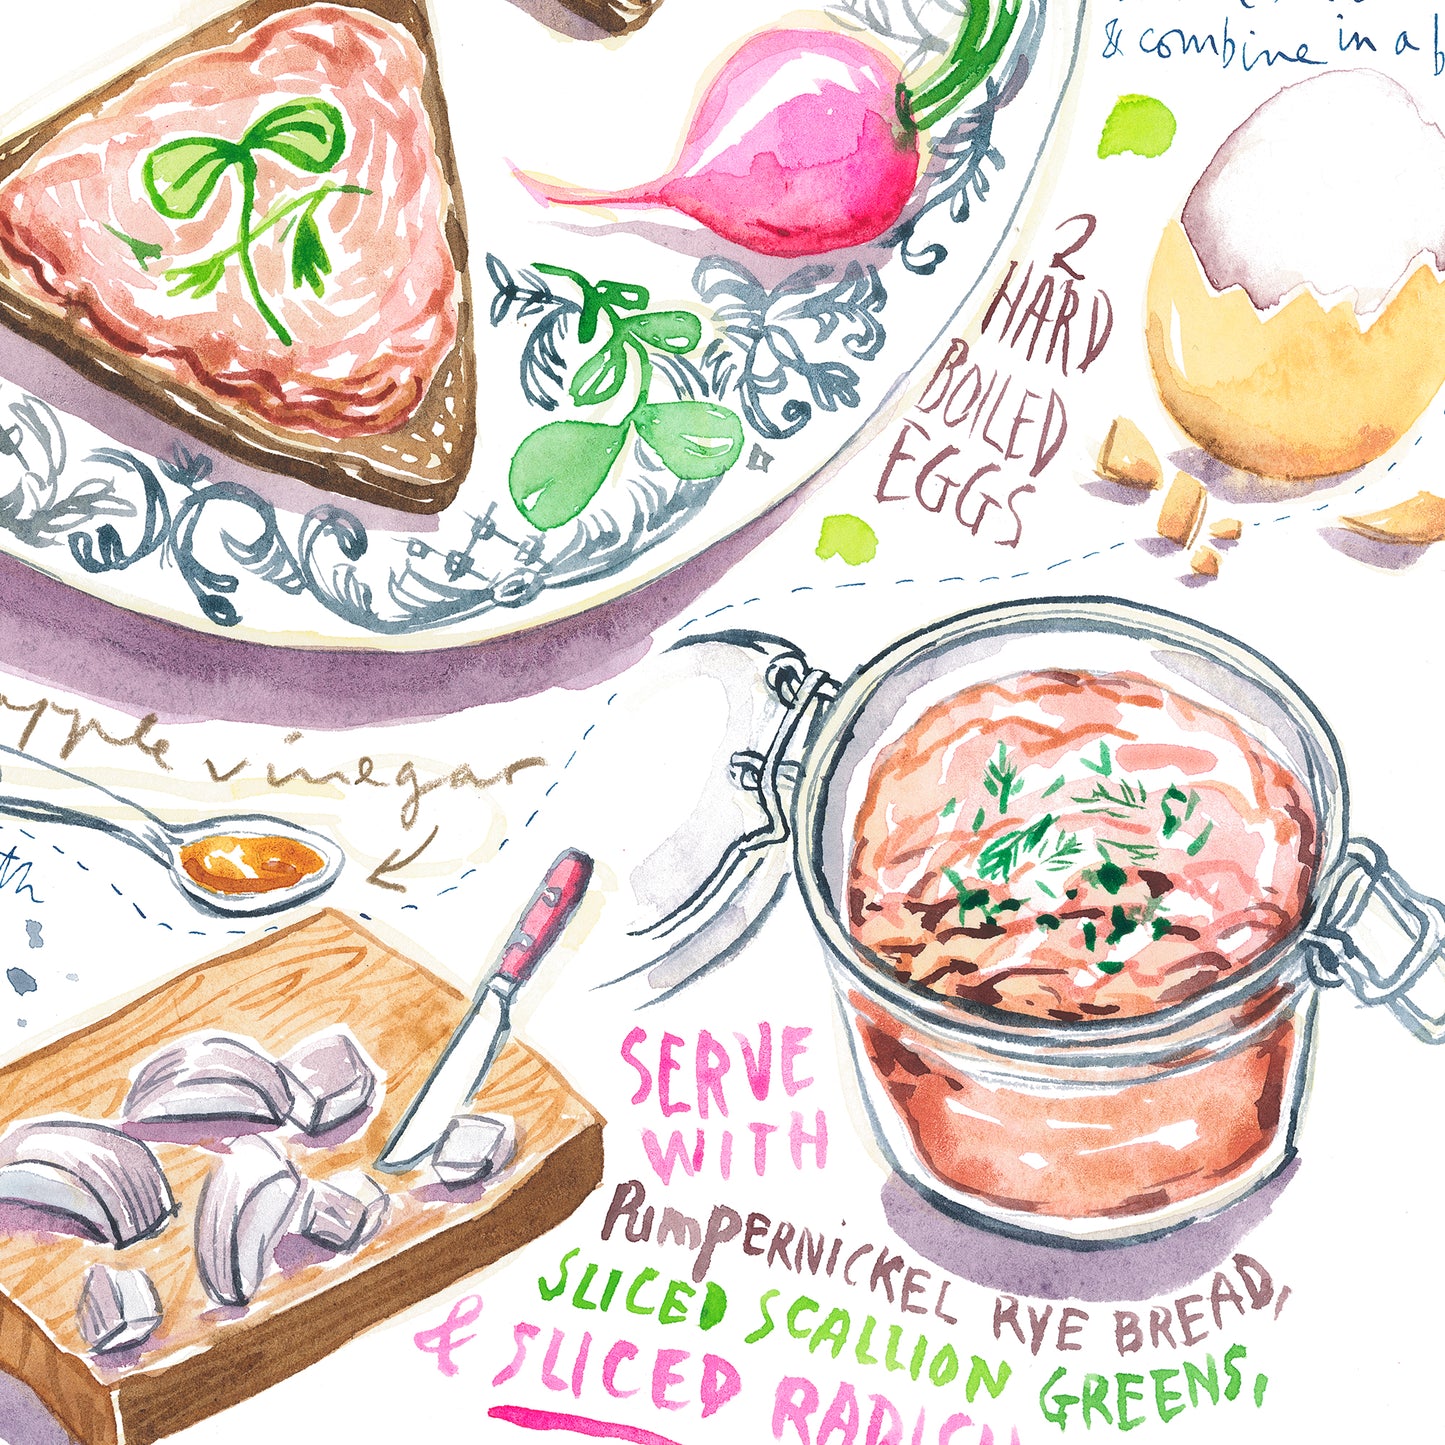 & combine in a
2
HARD
BOILED
EGGS
apple vinegar
SERVE
WITH
PUMPERNICKEL RYE BREAD,
SLICED SCALLION GREENS,
& SLICED RADISH